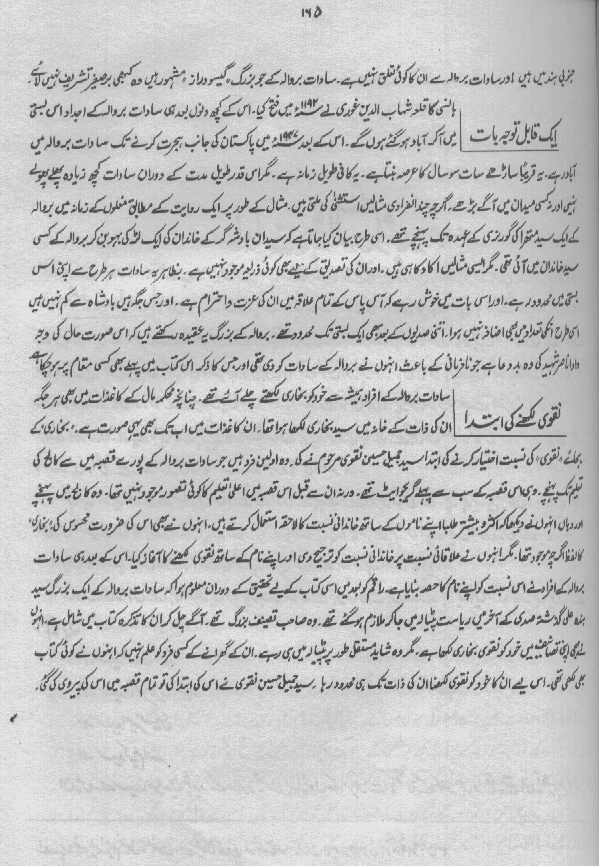 ۱۶۵
جنوبی ہند میں ہیں اور سادات بروالہ سے ان کا کوئی تعلق نہیں ہے۔ سادات بروالہ کے جو بزرگ "گیسو دراز" مشہور ہیں وہ کبھی برصغیر تشریف نہیں لائے۔
ایک قابل توجہ بات
ہانسی کا قلعہ شہاب الدین غوری نے ۱۱۹۲ء میں فتح کیا۔ اس کے کچھ دنوں بعد ہی سادات بروالہ کے اجداد اس بستی
میں آکر آباد ہو گئے ہوں گے۔ اس کے بعد ۱۹۴۷ء میں پاکستان کی جانب ہجرت کرنے تک سادات بروالہ میں
آباد رہے۔ یہ قریباً ساڑھے سات سو سال کا عرصہ بنتا ہے۔ یہ کافی طویل زمانہ ہے۔ مگر اس قدر طویل مدت کے دوران سادات کچھ زیادہ پھلے پھولے
نہیں اور نہ کسی میدان میں آگے بڑھے۔ اگرچہ چند انفرادی مثالیں استثنیٰ کی ملتی ہیں۔ مثال کے طور پر ایک روایت کے مطابق مغلوں کے زمانہ میں بروالہ
کے ایک سید متھرا کی گورنری کے عہدہ تک پہنچے تھے۔ اسی طرح بیان کیا جاتا ہے کہ سیدان بادشاہ گر کے خاندان کی ایک لڑکی بہو بن کر بروالہ کے کسی
سید خاندان میں آئی تھی۔ مگر ایسی مثالیں اکا دکا ہی ہیں۔ اور ان کی تصدیق کے لیے بھی کوئی ذریعہ موجود نہیں ہے۔ بظاہر یہ سادات ہر طرح سے اپنی اس
بستی میں محدود رہے۔ اور اسی بات میں خوش رہے کہ آس پاس کے تمام علاقہ میں ان کی عزت و احترام ہے۔ اور جس جگہ ہیں بادشاہ سے کم نہیں ہیں
اسی طرح انکی تعداد میں بھی اضافہ نہیں ہوا۔ اتنی صدیوں کے بعد بھی ایک بستی تک محدود تھے۔ بروالہ کے بزرگ یہ عقیدہ رکھتے ہیں کہ اس صورت حال کی وجہ
دادا ناصر شہید کی وہ بددعا ہے جو نافرمانی کے باعث انہوں نے بروالہ کے سادات کو دی تھی اور جس کا ذکر اس کتاب میں پہلے بھی کسی مقام پر ہو چکا ہے
نقوی لکھنے کی ابتدا
سادات بروالہ کے افراد ہمیشہ سے خود کو بخاری لکھتے چلے آئے تھے۔ چنانچہ محکمہ مال کے کاغذات میں بھی ہر جگہ
ان کی ذات کے خانہ میں سید بخاری لکھا ہوا تھا۔ ان کاغذات میں اب تک بھی یہی صورت ہے۔ "بخاری" کے
بجائے "نقوی" کی نسبت اختیار کرنے کی ابتدا سید جمیل حسین نقوی مرحوم نے کی۔ وہ اولین فرد ہیں جو سادات بروالہ کے پورے قصبہ میں سے کالج کی
تعلیم تک پہنچے۔ وہی اس قصبہ کے سب سے پہلے گریجوایٹ تھے۔ ورنہ ان سے قبل اس قصبہ میں اعلیٰ تعلیم کا کوئی تصور موجود نہیں تھا۔ وہ کالج میں پہنچے
اور وہاں انہوں نے دیکھا کہ اکثر و بیشتر طلبا اپنے ناموں کے ساتھ خاندانی نسبت کا لاحقہ استعمال کرتے ہیں۔ انہوں نے بھی اس کی ضرورت محسوس کی "بخاری"
کا لفظ اگرچہ موجود تھا۔ مگر انہوں نے علاقائی نسبت پر خاندانی نسبت کو ترجیح دی اور اپنے نام کے ساتھ نقوی لکھنے کا آغاز کیا۔ اس کے بعد ہی سادات
بروالہ کے افراد نے اس نسبت کو اپنے نام کا حصہ بنایا ہے۔ راقم کو بعد میں اسی کتاب کے لیے تحقیق کے دوران معلوم ہوا کہ سادات بروالہ کے ایک بزرگ سید
بندہ علی گذشتہ صدی کے آخر میں ریاست پٹیالہ میں جا کر ملازم ہو گئے تھے۔ وہ صاحب تصنیف بزرگ تھے۔ آگے چل کر ان کا تذکرہ کتاب میں شامل ہے۔ انہوں
نے بھی اپنی تصانیف میں خود کو نقوی بخاری لکھا ہے۔ مگر وہ شاید مستقل طور پر پٹیالہ میں ہی رہے۔ ان کے گھرانے کے کسی فرد کو علم نہیں کہ انہوں نے کوئی کتاب
بھی لکھی تھی۔ اس لیے ان کا خود کو نقوی لکھنا ان کی ذات تک ہی محدود رہا۔ سید جمیل حسین نقوی نے اس کی ابتدا کی تو تمام قصبہ میں اس کی پیروی کی گئی۔